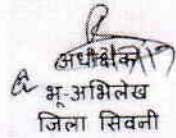 अधीक्षक
भू-अभिलेख
जिला सिवनी